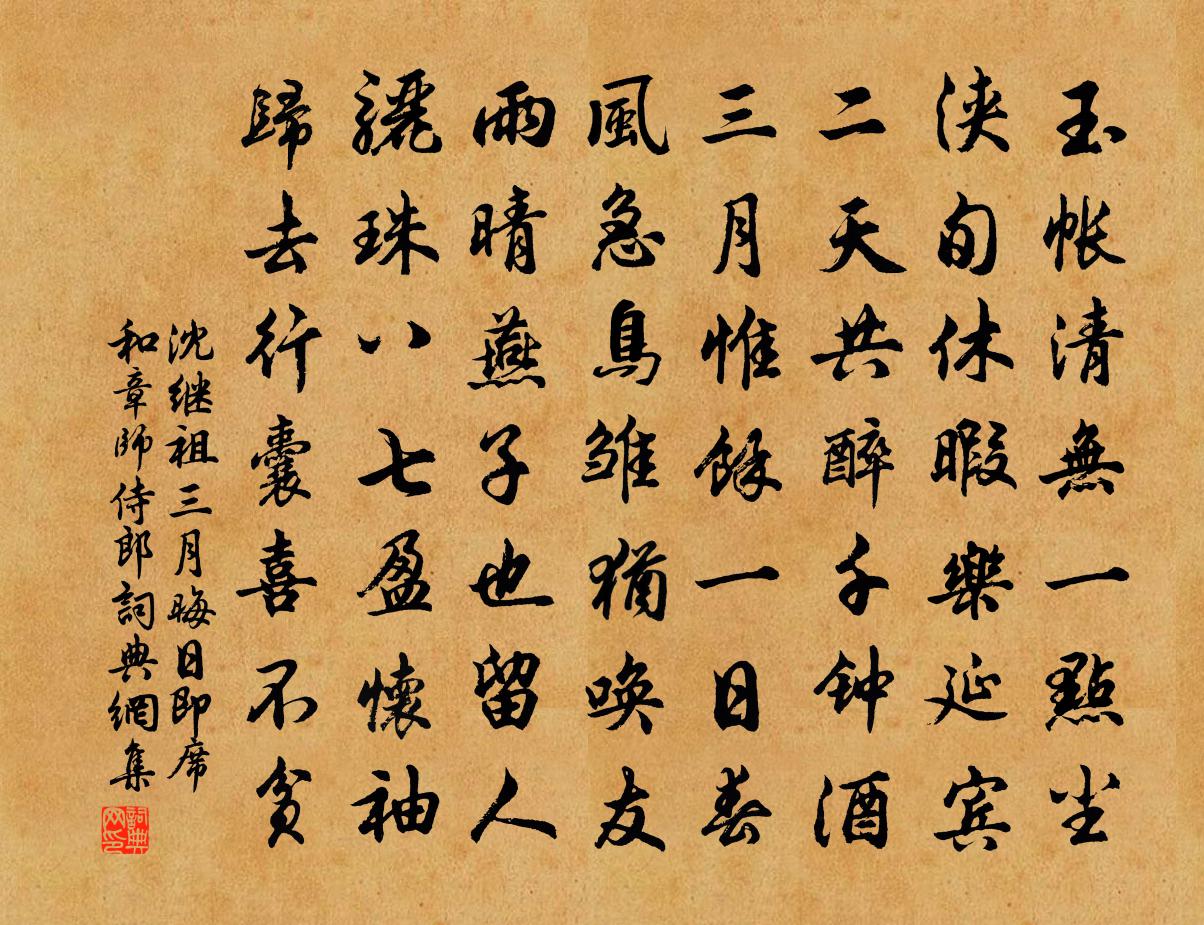 玉帐清無一點尘
浹旬休暇樂延宾
二天共醉千钟酒
三月惟餘一日春
風急鳥雏猶唤友
雨晴燕子也留人
驪珠八七盈懷袖
歸去行囊喜不贫
沈继祖三月晦日即席
和章師侍郎詞典網集
詞典
网印